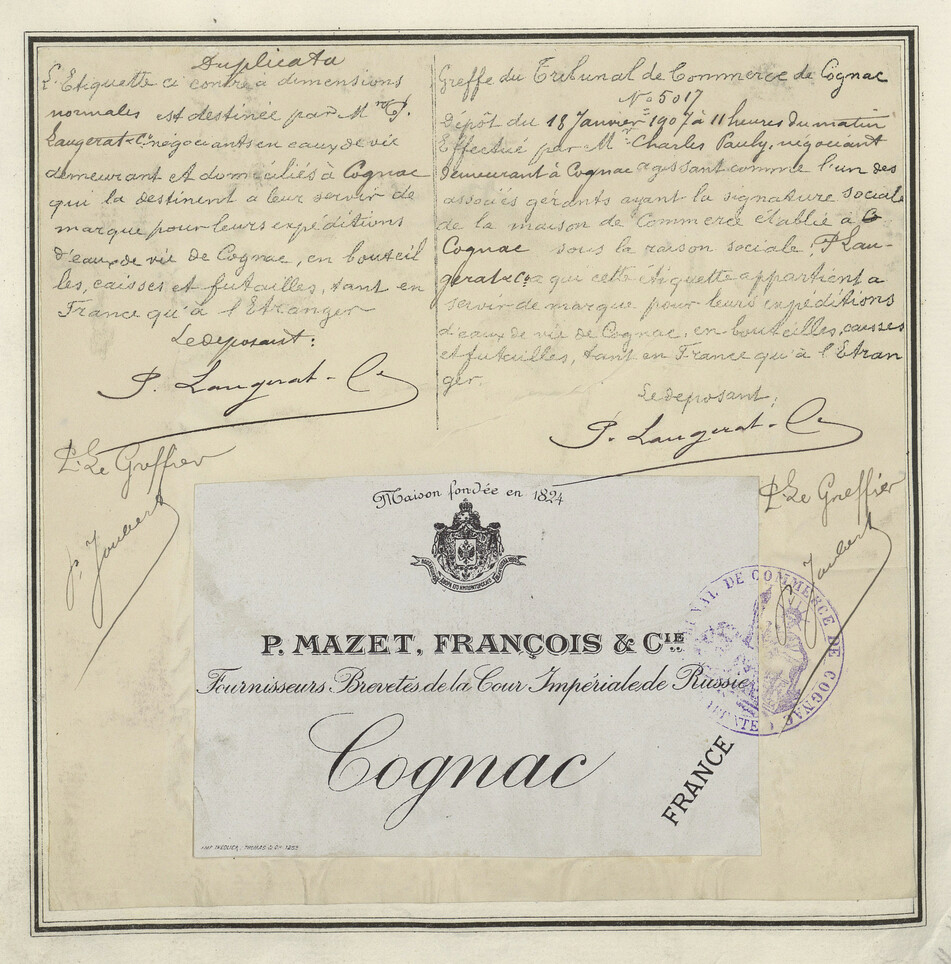 Duplicata
L'Etiquette ci contre à dimensions
normales est destinée par Mrs P.
Laugerat & Cie négociants en eaux de vie
demeurant et domiciliés à Cognac
qui la destinent a leur servir de
marque pour leurs expéditions
d'eaux de vie de Cognac, en bouteil
les, caisses et futailles, tant en
France qu'à l'Etranger
Le deposant:
P. Laugerat & Cie
P. Le Greffier
P. Joubert
Greffe du Tribunal de Commerce de Cognac
No 5017
Dépôt du 18 Janvier 1907 à 11 heures du matin
Effectué par Mr Charles Pauly, négociant
demeurant à Cognac agissant comme l'un des
associés gérants ayant la signature sociale
de la maison de Commerce établie à
Cognac sous la raison sociale, P. Lau-
gerat & Co que cette étiquette appartient a
servir de marque pour leurs expéditions
d'eaux de vie de Cognac, en bouteilles, caisses
et futailles, tant en France qu'à l'Etran
ger.
Le deposant;
P. Laugerat & Cie
P. Le Greffier
Joubert
Maison fondée en 1824
P. MAZET, FRANÇOIS & CIE
Fournisseurs Brevetés de la Cour Impériale de Russie
Cognac
FRANCE
TRIBUNAL DE COMMERCE DE COGNAC